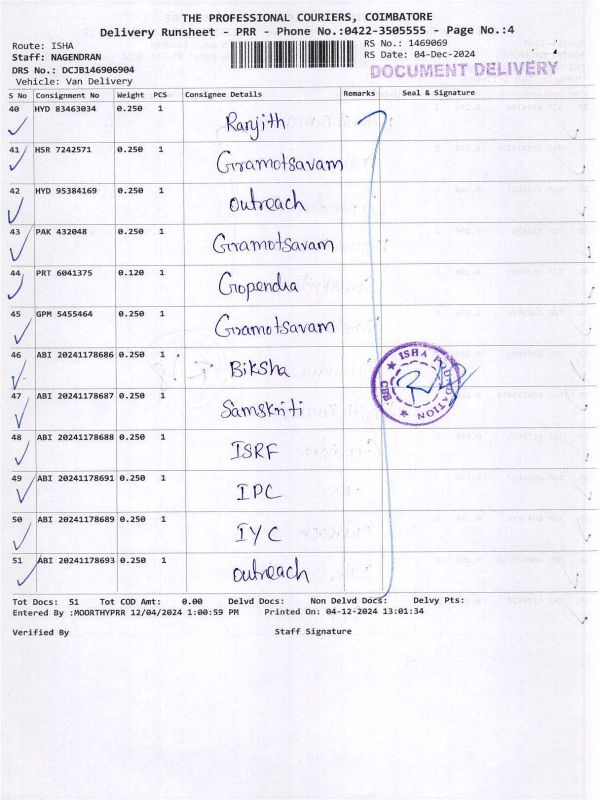 THE PROFESSIONAL COURIERS, COIMBATORE
Delivery Runsheet - PRR - Phone No.:0422-3505555 - Page No.:4
Route: ISHA
RS No.: 1469069
Staff: NAGENDRAN
RS Date: 04-Dec-2024
DRS No.: DCJB146906904
DOCUMENT DELIVERY
Vehicle: Van Delivery
S No Consignment No Weight PCS Consignee Details Remarks Seal & Signature
40 HYD 83463034 0.250 1 Ranjith
41 HSR 7242571 0.250 1 Gramotsavam
42 HYD 95384169 0.250 1 outreach
43 PAK 432048 0.250 1 Gramotsavam
44 PRT 6041375 0.120 1 Gopendra
45 GPM 5455464 0.250 1 Gramotsavam
46 ABI 20241178686 0.250 1 Biksha
ISHA FOUNDATION CBE.
47 ABI 20241178687 0.250 1 Samskriti
48 ABI 20241178688 0.250 1 ISRF
49 ABI 20241178691 0.250 1 IPC
50 ABI 20241178689 0.250 1 IYC
51 ABI 20241178693 0.250 1 outreach
Tot Docs: 51 Tot COD Amt: 0.00 Delvd Docs: Non Delvd Docs: Delvy Pts:
Entered By :MOORTHYPRR 12/04/2024 1:00:59 PM Printed On: 04-12-2024 13:01:34
Verified By Staff Signature